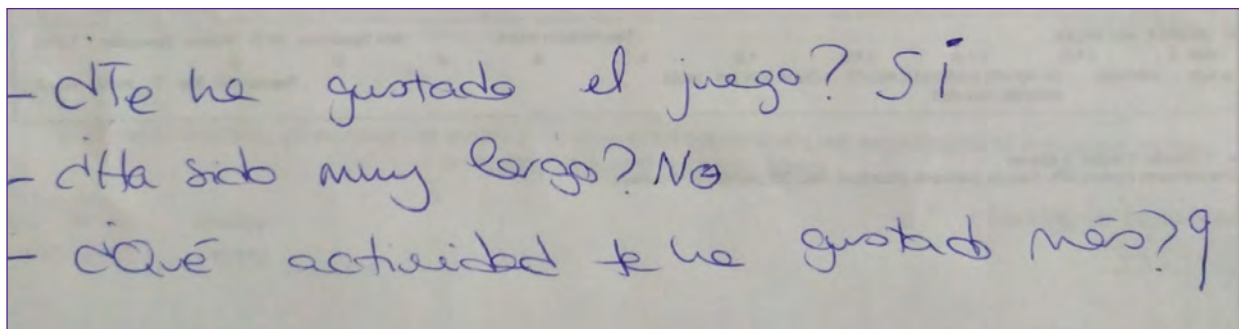 - ¿Te ha gustado el juego? Sí
- ¿Ha sido muy largo? No
- ¿Qué actividad te ha gustado más? 9